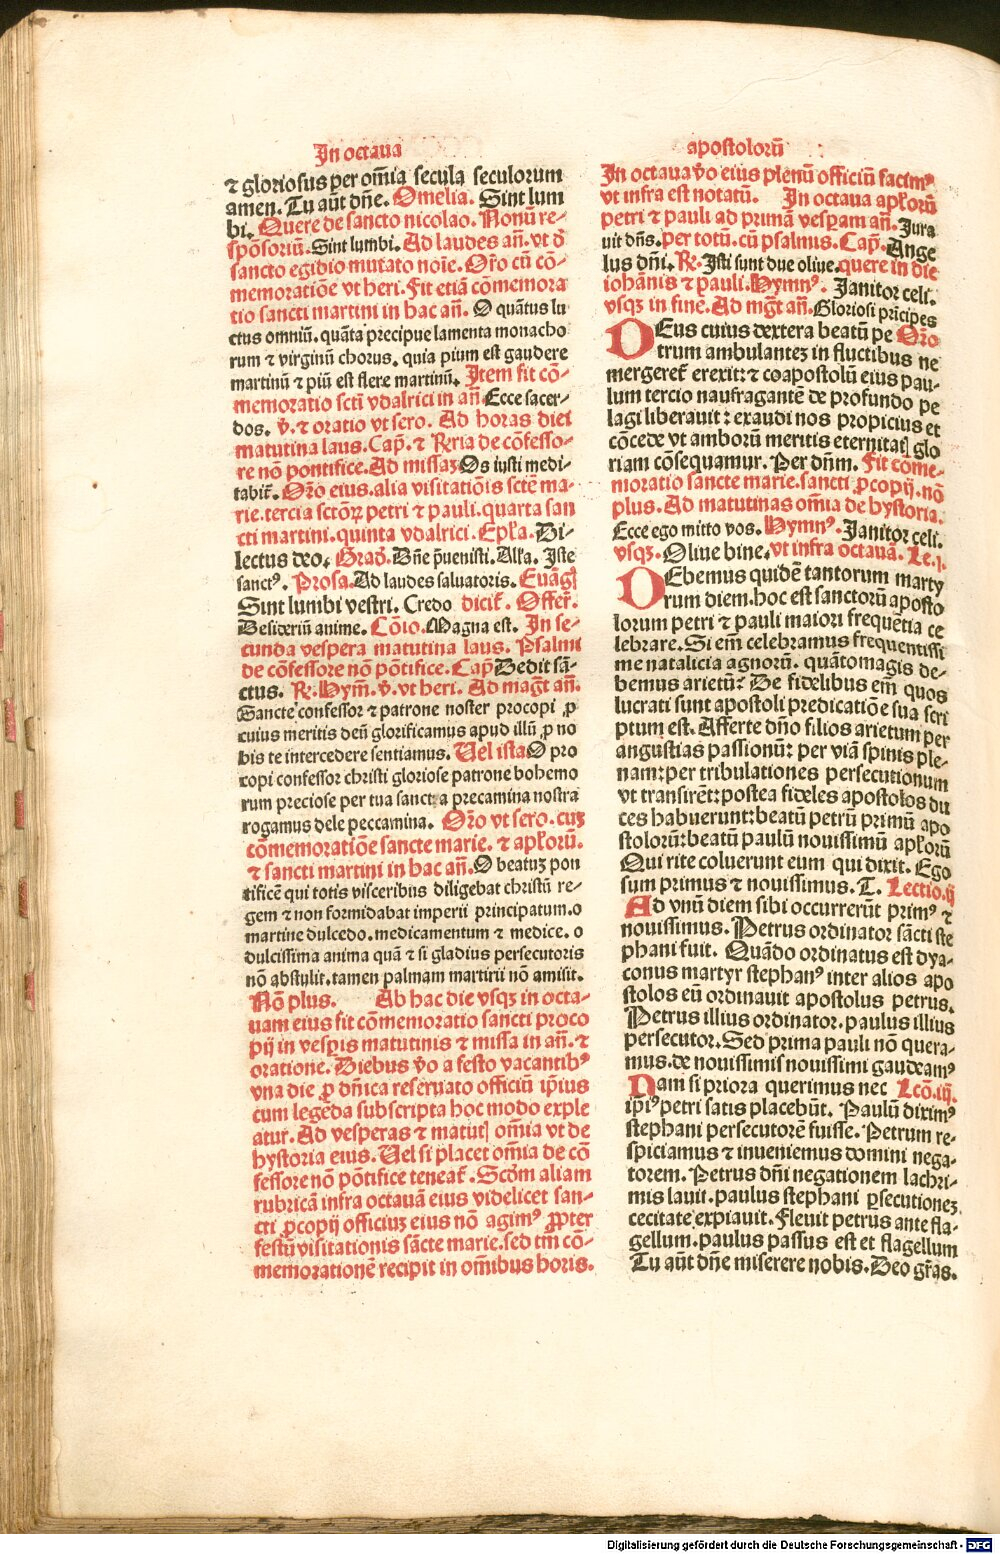 In octaua
⁊ gloriosus per om̄ia secula seculorum
amen. Tu aūt dn̄e. Omelia. Sint lum
bi. Quere de sancto nicolao. Nonū re⸗
spōsoriū. Sint lumbi. Ad laudes an̄. vt d̄
sancto egidio mutato noīe. Or̄o cū cō⸗
memoratiōe vt heri. Fit etiā cōmemora
tio sancti martini in hac an̄. O quātus lu
ctus omniū. quāta precipue lamenta monacho
rum ⁊ virginū chorus. quia pium est gaudere
martinū ⁊ piū est flere martinū. Item fit cō⸗
memoratio sctī vdalrici in an̄ Ecce sacer⸗
dos. v̄. ⁊ oratio vt sero. Ad horas diei
matutina laus. Cap̄. ⁊ Rr̄ia de cōfesso⸗
re nō pontifice. Ad missaꝫ Os iusti medi⸗
tabit̄. Or̄o eius. alia visitatiōis sctē ma⸗
rie. tercia sctōꝝ petri ⁊ pauli. quarta san
cti martini. quinta vdalrici. Epl̄a. Di⸗
lectus deo. Grad̄. Dn̄e p̄uenisti. All̄a. Iste
sanctꝰ. Prosa. Ad laudes saluatoris. Euāgꝭ
Sint lumbi vestri. Credo dicit̄. Offer̄.
Desideriū anime. Cōio. Magna est. In se⸗
cunda vespera matutina laus. Psalmi
de cōfessore nō pōtifice. Cap̄ Dedit sā⸗
ctus. R̄. Hym̄. v̄. vt heri. Ad maḡt an̄.
Sancte confessor ⁊ patrone noster procopi ꝓ
cuius meritis deū glorificamus apud illū ꝓ no
bis te intercedere sentiamus. Uel ista O pro
copi confessor christi gloriose patrone bohemo
rum preciose per tua sancta precamina nostra
rogamus dele peccamina. Or̄o vt sero. cuꝫ
cōmemoratiōe sancte marie. ⁊ apl̄orū.
⁊ sancti martini in hac an̄. O beatuꝫ pon
tificē qui totis visceribus diligebat christū re⸗
gem ⁊ non formidabat imperii principatum. o
martine dulcedo. medicamentum ⁊ medice. o
dulcissima anima quā ⁊ si gladius persecutoris
nō abstulit. tamen palmam martirii nō amisit.
Nō plus. Ab hac die vsqꝫ in octa⸗
uam eius fit cōmemoratio sancti proco
pij in vesp̄is matutinis ⁊ missa in an̄. ⁊
oratione. Diebus v̄o a festo vacantibꝰ
vna die ꝓ dn̄ica reseruato officiū ip̄ius
cum legēda subscripta hoc modo exple
atur. Ad vesperas ⁊ matutꝭ om̄ia vt de
hystoria eius. Uel si placet om̄ia de cō
fessore nō pōtifice teneat̄. Scd̄m aliam
rubricā infra octauā eius videlicet san⸗
cti ꝓcopij officiuꝫ eius nō agimꝰ ꝓpter
festū visitationis sācte marie. sed tm̄ cō⸗
memorationē recipit in om̄ibus horis.
apostolorū
In octaua v̄o eius plenū officiū facimꝰ
vt infra est notatū. In octaua apl̄orū
petri ⁊ pauli ad primā vesp̄am an̄. Jura
uit dn̄s. per totū. cū psalmus. Cap̄. Ange
lus dn̄i. R̄. Isti sunt due oliue. quere in die
iohānis ⁊ pauli. Hymnꝰ. Janitor celi.
vsqꝫ in fine. Ad mg̅t an̄. Gloriosi prīcipes
DEus cuius dextera beatū pe Or̄o
trum ambulanteꝫ in fluctibus ne
mergeret̄ erexit: ⁊ coapostolū eius pau⸗
lum tercio naufragantē de profundo pe
lagi liberauit: exaudi nos propicius et
cōcede vt amborū meritis eternitatꝭ glo
riam cōsequamur. Per dn̄m. Fit cōme⸗
moratio sancte marie. sancti ꝓcopij. nō
plus. Ad matutinas om̄ia de hystoria.
Ecce ego mitto vos. Hymnꝰ. Janitor celi.
vsqꝫ. Oliue bine. vt infra octauā. Le. j.
DEbemus quidē tantorum marty
rum diem. hoc est sanctorū aposto
lorum petri ⁊ pauli maiori frequētia ce
lebrare. Si em̄ celebramus frequentissi
me natalicia agnorū. quātomagis de⸗
bemus arietū: De fidelibus em̄ quos
lucrati sunt apostoli predicatiōe sua scri
ptum est. Afferte dn̄o filios arietum per
angustias passionū: per viā spinis ple⸗
nam: per tribulationes persecutionum
vt transirēt: postea fideles apostolos du
ces habuerunt: beatū petrū primū apo
stolorū: beatū paulū nouissimū apl̄orū
Qui rite coluerunt eum qui dixit. Ego
sum primus ⁊ nouissimus. T. Lectio. ij
Ad vnū diem sibi occurrerūt primꝰ ⁊
nouissimus. Petrus ordinator sācti ste
phani fuit. Quādo ordinatus est dya⸗
conus martyr stephanꝰ inter alios apo
stolos eū ordinauit apostolus petrus.
Petrus illius ordinator. paulus illius
persecutor. Sed prima pauli nō quera⸗
mus. de nouissimis nouissimi gaudeamꝰ
Nam si priora querimus nec Lcō. iij.
ip̄iꝰ petri satis placebūt. Paulū diximꝰ
stephani persecutorē fuisse. Petrum re⸗
spiciamus ⁊ inueniemus domini nega⸗
torem. Petrus dn̄i negationem lachri⸗
mis lauit. paulus stephani ꝑsecutioneꝫ
cecitate expiauit. Fleuit petrus ante fla⸗
gellum. paulus passus est et flagellum
Tu aūt dn̄e miserere nobis. Deo gr̄as.
Digitalisierung gefördert durch die Deutsche Forschungsgemeinschaft - DFG